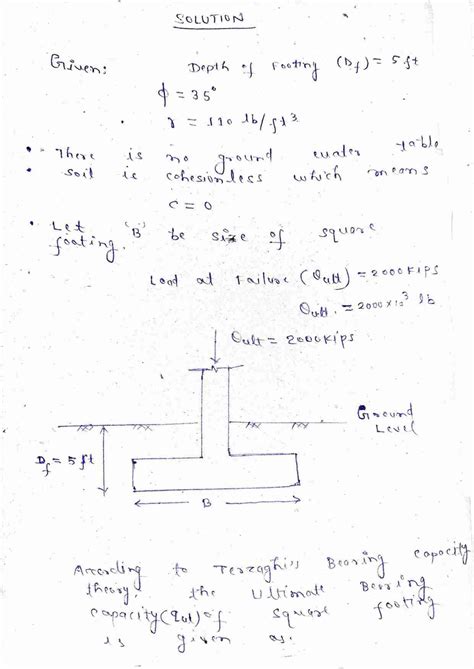 SOLUTION
Given: Depth of Footing (Df) = 5 ft
ϕ = 35°
γ = 110 lb/ft3
• There is no ground water table
• soil is cohesionless which means
C = 0
• Let 'B' be size of square
footing.
Load at Failure (Qult) = 2000 KIPS
Qult. = 2000 x 10³ lb
Qult = 2000 KIPS
Ground
Level
Df = 5 ft
B
According to Terzaghi's Bearing capacity
theory, the Ultimate Bearing
capacity (qult) of square footing
is given as.